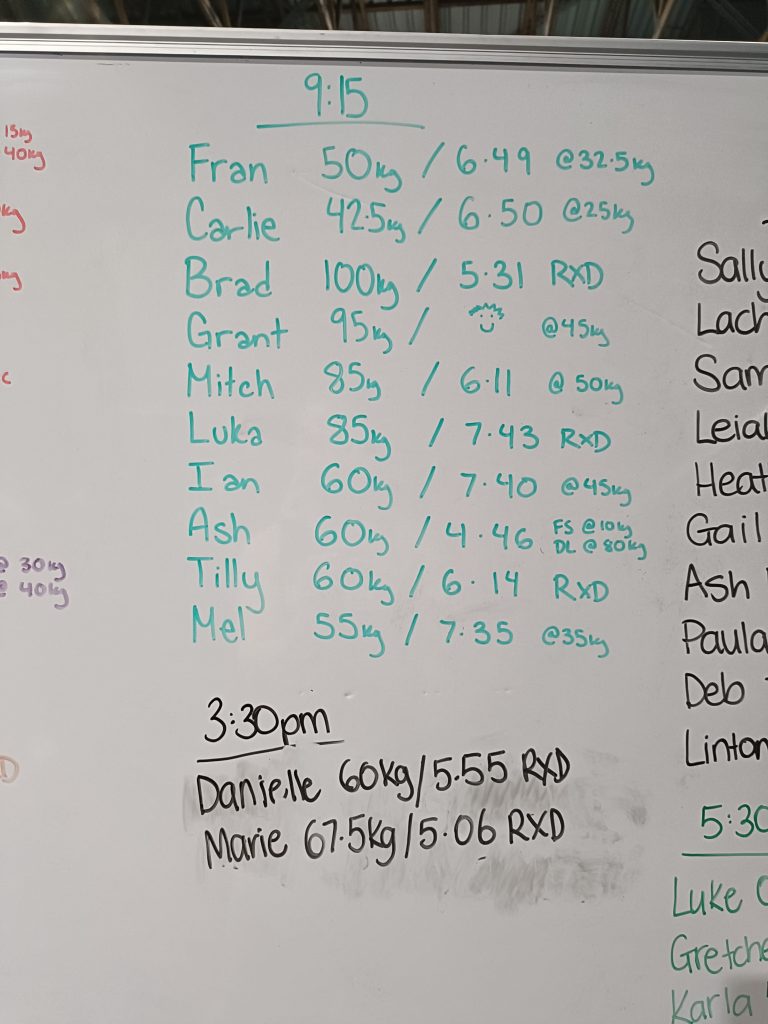 15kg
40kg
kg
kg
c
@ 30kg
@ 40kg
D
9:15
Fran 50kg / 6.49 @32.5kg
Carlie 42.5kg / 6.50 @25kg
Brad 100kg / 5.31 RXD
Grant 95kg / @45kg
Mitch 85kg / 6.11 @ 50kg
Luka 85kg / 7.43 RXD
Ian 60kg / 7.40 @45kg
Ash 60kg / 4.46 FS @10kg
DL @ 80kg
Tilly 60kg / 6.14 RXD
Mel 55kg / 7:35 @35kg
3:30pm
Danielle 60kg/5.55 RXD
Marie 67.5kg/5.06 RXD
Sally
Lach
Sam
Leial
Heat
Gail
Ash
Paula
Deb
Linton
5:30
Luke
Gretche
Karla